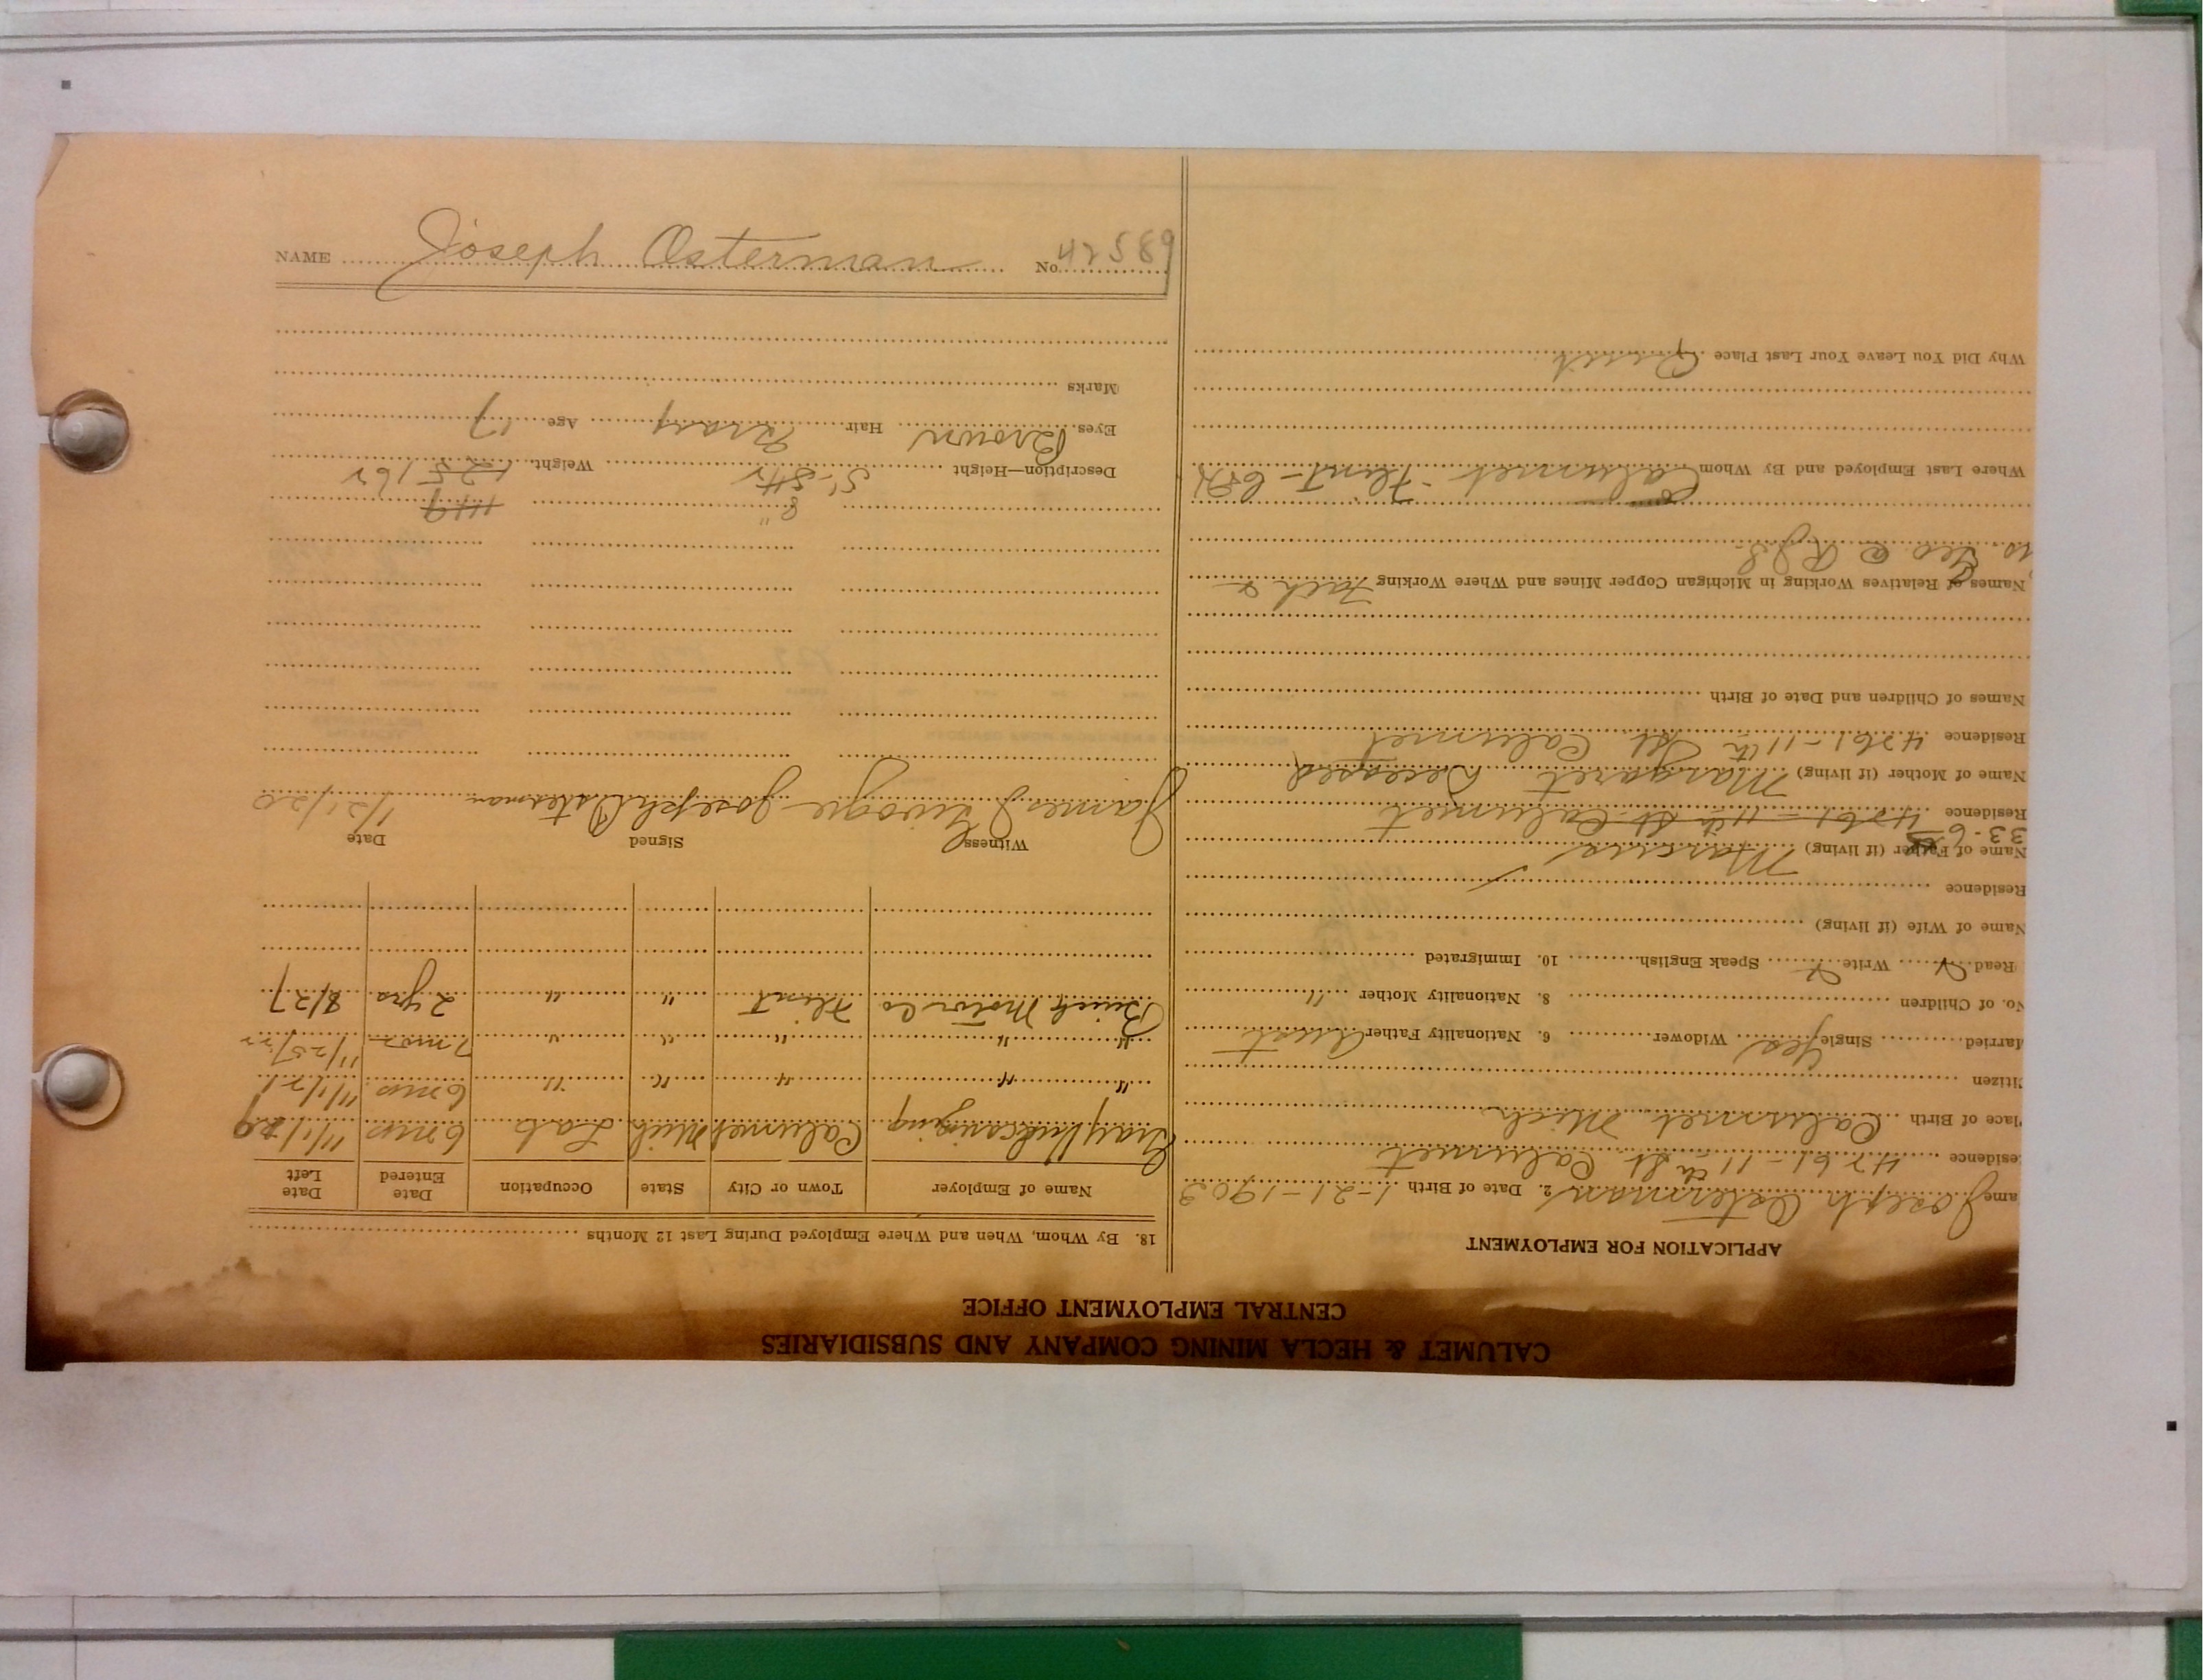 CALUMET & HECLA MINING COMPANY AND SUBSIDIARIES
CENTRAL EMPLOYMENT OFFICE
APPLICATION FOR EMPLOYMENT
ame Joseph Osterman 2. Date of Birth 1-21-1903
esidence 4761-11th St Calumet
lace of Birth Calumet Mich
itizen
Married Single Yes Widower 6. Nationality Father Aust
No. of Children 8. Nationality Mother "
Read Write Speak English 10. Immigrated
Name of Wife (if living)
Residence
Name of Father (if living) Marcus
33-6
Residence 4761-11th St-Calumet
Name of Mother (if living) Margaret Deceased
Residence 4761-11th St Calumet
Names of Children and Date of Birth
Names of Relatives Working in Michigan Copper Mines and Where Working
Geo @
Where Last Employed and By Whom Calumet - Flint -
Why Did You Leave Your Last Place Quit
18. By Whom, When and Where Employed During Last 12 Months
Name of Employer Town or City State Occupation Date Entered Date Left
Vulcanizing Calumet Mich Lab 6 mos
" " " " " 6 mos 11/1/21
" " " " " 7 mos 11/25/22
Buick Motor Co Flint " " 2 yrs 8/27
Witness Signed Date
James J Joseph Osterman 1/21/20
8" 119
Description—Height 5'-5½ Weight 125 162
Eyes Brown Hair Age 17
Marks
NAME Joseph Osterman No. 42589